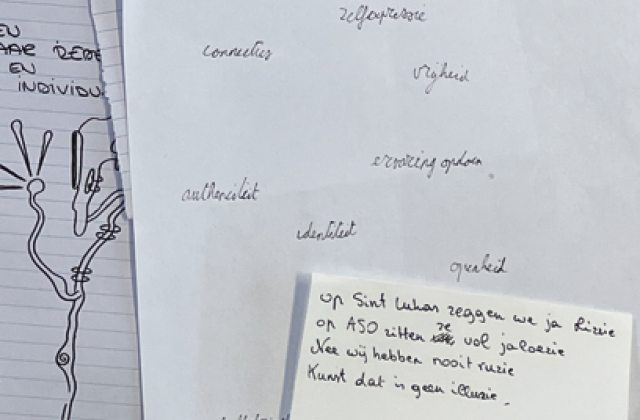 EN
EN
INDIVIDU
zelfexpressie
connecties
vrijheid
ervaring opdoen
authenciteit
identiteit
openheid
op Sint Lukas zeggen we ja Lizzie
op ASO zitten ze vol jaloezie
Nee wij hebben nooit ruzie
Kunst dat is geen illusie.